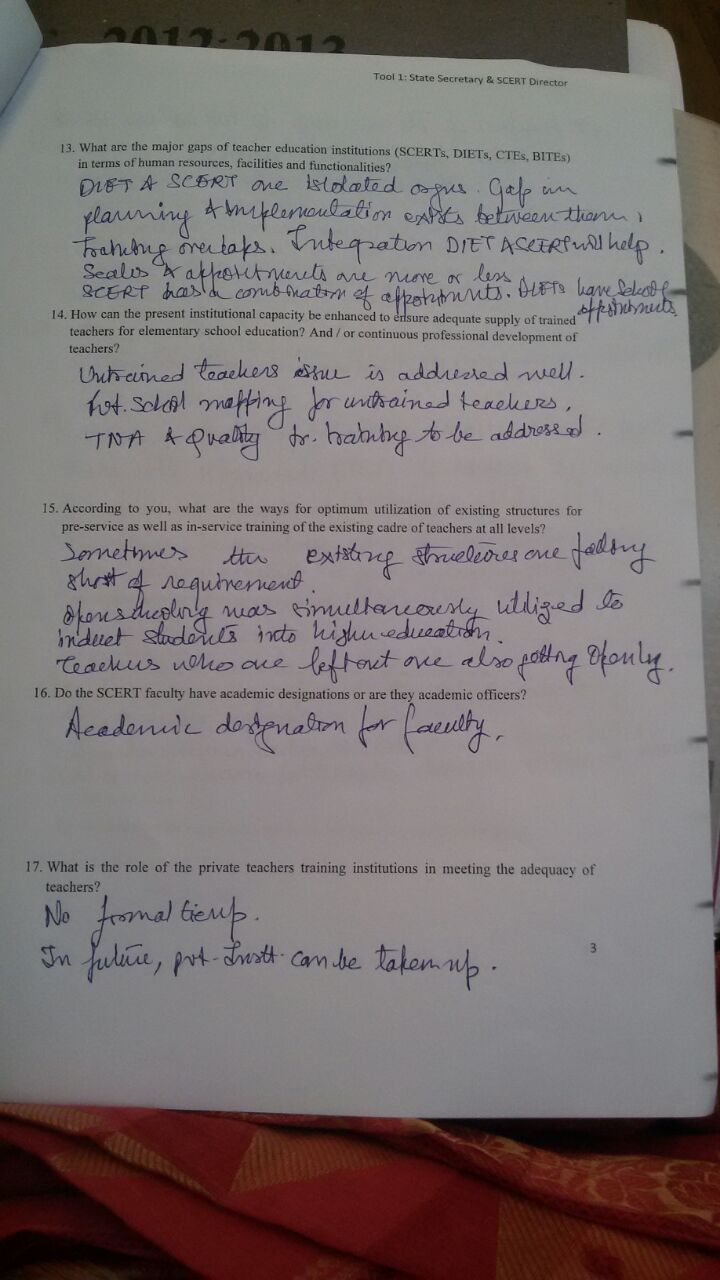 2012-2013
Tool 1: State Secretary & SCERT Director
13. What are the major gaps of teacher education institutions (SCERTs, DIETs, CTEs, BITEs)
in terms of human resources, facilities and functionalities?
DIET & SCERT are Isolated orgns. Gap in
planning & Implementation exists between them,
Training overlaps. Integration DIET & SCERT will help.
Scales & appointments are more or less
SCERT has a combination of appointments. DIETs have School
appointments
14. How can the present institutional capacity be enhanced to ensure adequate supply of trained
teachers for elementary school education? And / or continuous professional development of
teachers?
Untrained teachers issue is addressed well.
School mapping for untrained teachers,
TNA & Quality tr. training to be addressed.
15. According to you, what are the ways for optimum utilization of existing structures for
pre-service as well as in-service training of the existing cadre of teachers at all levels?
Sometimes the existing structures are falling
short of requirement.
Open schooling was simultaneously utilized to
induct students into higher education.
Teachers who are left out are also getting Openly.
16. Do the SCERT faculty have academic designations or are they academic officers?
Academic designation for faculty,
17. What is the role of the private teachers training institutions in meeting the adequacy of
teachers?
No formal tie up.
In future, pvt. Instt. can be taken up.
3